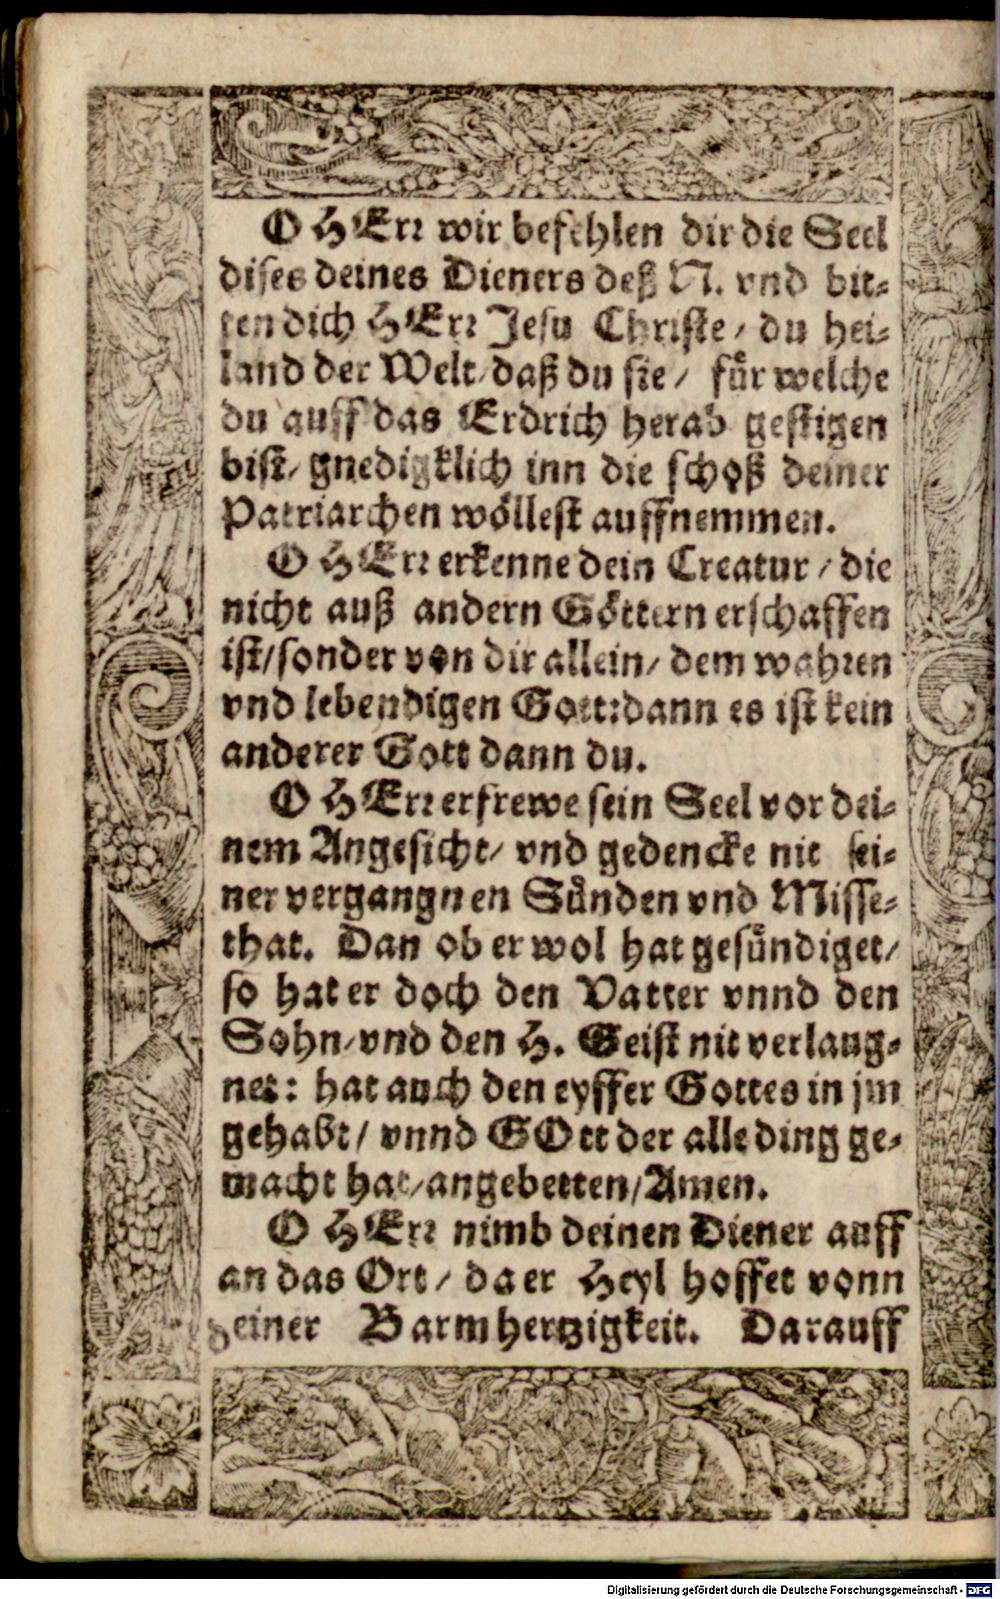 O HErr wir befehlen dir die Seel
dises deines Dieners deß N. vnd bit-
ten dich HErr Jesu Christe / du hei-
land der Welt / daß du sie / für welche
du auff das Erdrich herab gestigen
bist / gnedigklich inn die schoß deiner
Patriarchen wöllest auffnemmen.
O HErr erkenne dein Creatur / die
nicht auß andern Göttern erschaffen
ist / sonder von dir allein / dem wahren
vnd lebendigen Gott: dann es ist kein
anderer Gott dann du.
O HErr erfrewe sein Seel vor dei-
nem Angesicht / vnd gedencke nit sei-
ner vergangnen Sünden vnd Misse-
that. Dan ob er wol hat gesündiget /
so hat er doch den Vatter vnnd den
Sohn / vnd den H. Geist nit verlaug-
net: hat auch den eyffer Gottes in jm
gehabt / vnnd GOtt der alle ding ge-
macht hat / angebetten / Amen.
O HErr nimb deinen Diener auff
an das Ort / da er Heyl hoffet vonn
deiner Barmhertzigkeit. Darauff
Digitalisierung gefördert durch die Deutsche Forschungsgemeinschaft - DFG